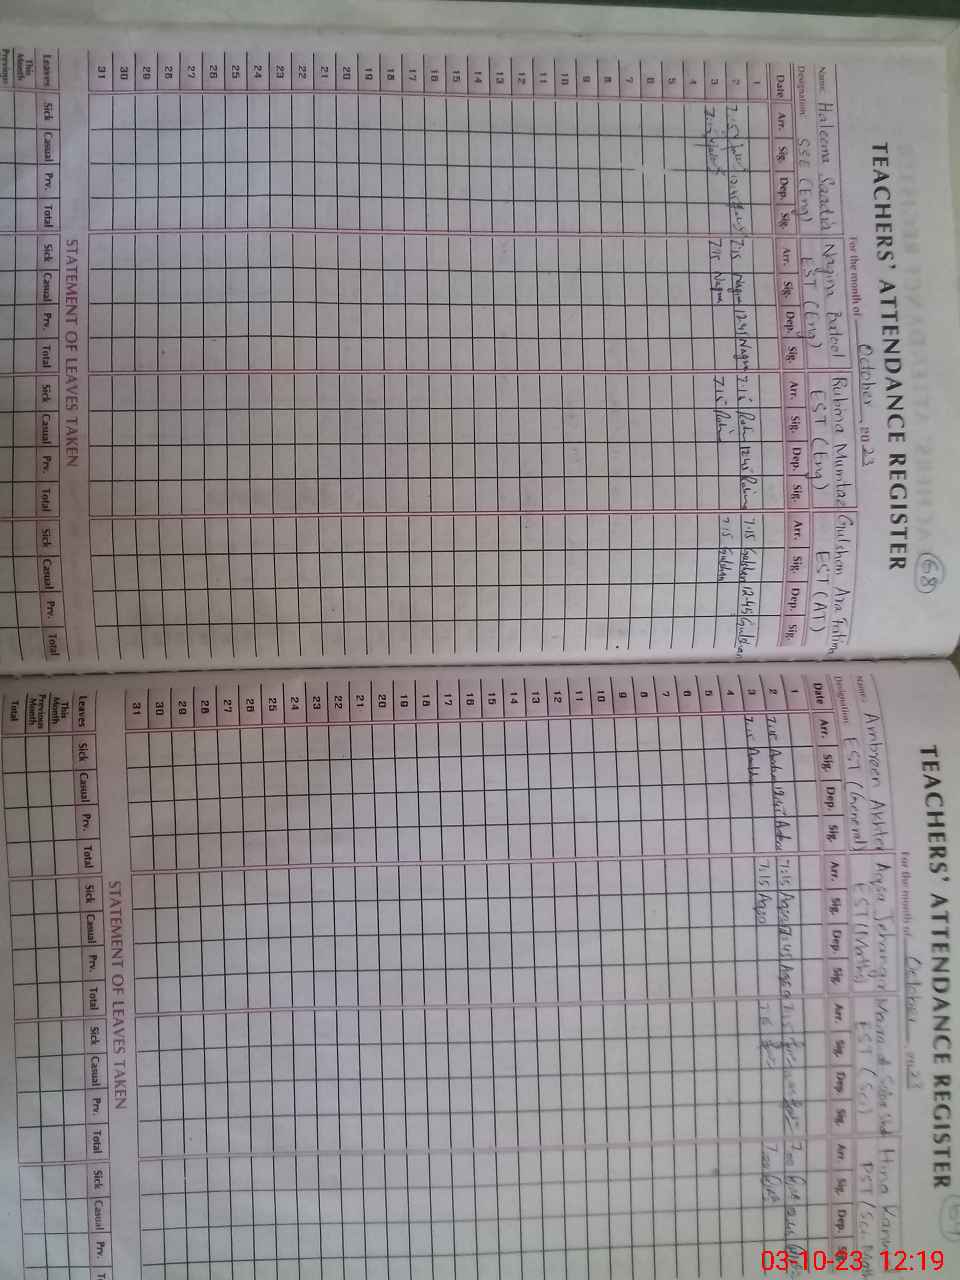 68
TEACHERS' ATTENDANCE REGISTER
For the month of October 2023
Name: Haleema Saadia Nagina Batool Rubina Mumtaz Gulshan Ara Fatima
Designation: SSE (Eng) EST (Eng) EST (Eng) EST (AT)
Date Arr. Sig. Dep. Sig. Arr. Sig. Dep. Sig. Arr. Sig. Dep. Sig. Arr. Sig. Dep. Sig.
1
2 7:15 12:45 7:15 Nagina 12:45 Nagina 7:15 Rubina 12:45 Rubina 7:15 Gulshan 12:45 Gulshan
3 7:15 7:15 Nagina 7:15 Rubina 7:15 Gulshan
4
5
6
7
8
9
10
11
12
13
14
15
16
17
18
19
20
21
22
23
24
25
26
27
28
29
30
31
STATEMENT OF LEAVES TAKEN
Leaves Sick Casual Prv. Total Sick Casual Prv. Total Sick Casual Prv. Total Sick Casual Prv. Total
This Month
Previous
TEACHERS' ATTENDANCE REGISTER
For the month of October 2023
Name: Ambreen Akhter Aqsa Jehangir Saba Hina
Designation: EST (General) EST (Maths) EST (Sci) PST (Sci Math
Date Arr. Sig. Dep. Sig. Arr. Sig. Dep. Sig. Arr. Sig. Dep. Sig. Arr. Sig. Dep.
1
2 7:15 12:45 7:15 Aqsa 12:45 Aqsa 7:15 7:00
3 7:15 7:15 Aqsa 7:15 7:00
4
5
6
7
8
9
10
11
12
13
14
15
16
17
18
19
20
21
22
23
24
25
26
27
28
29
30
31
STATEMENT OF LEAVES TAKEN
Leaves Sick Casual Prv. Total Sick Casual Prv. Total Sick Casual Prv. Total Sick Casual Prv.
This Month
Previous Month
Total
03-10-23 12:19